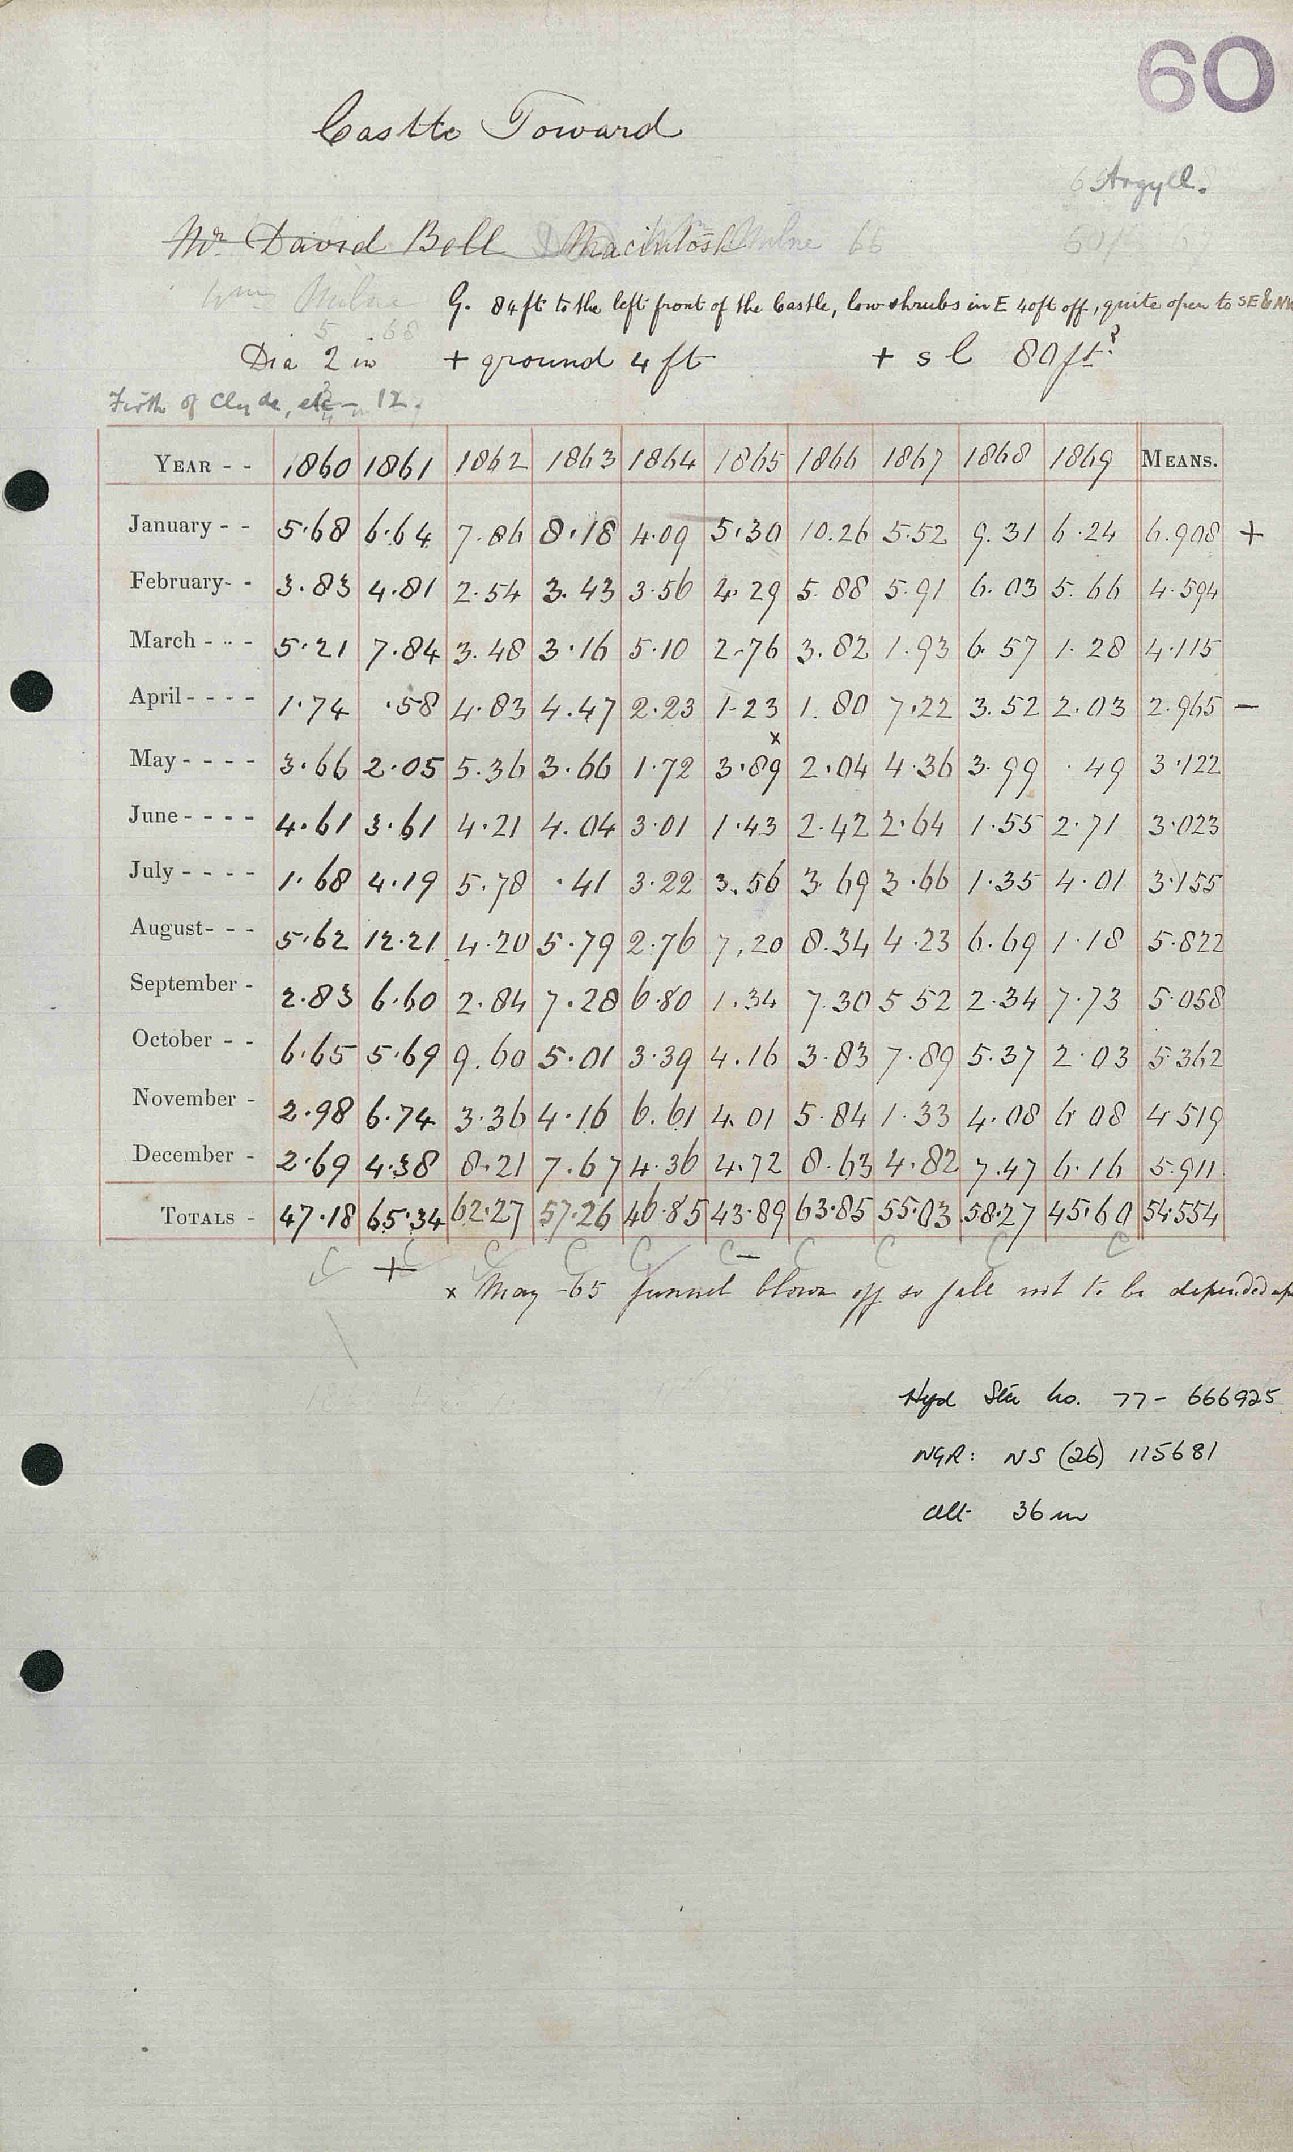 60
Castle Toward
Argyll.
Mr. David Bell Macintosh Milne 66
Wm Milne
5 68
G. 84ft to the left front of the Castle, low shrubs in E 40ft off, quite open to SE & NW
Dia 2 in + ground 4 ft + s l 80 ft?
Firth of Clyde, etc - 12.
YEAR - - 1860 1861 1862 1863 1864 1865 1866 1867 1868 1869 MEANS.
January - - 5.68 6.64 7.86 8.18 4.09 5.30 10.26 5.52 9.31 6.24 6.908 +
February- - 3.83 4.81 2.54 3.43 3.56 4.29 5.88 5.91 6.03 5.66 4.594
March - - - 5.21 7.84 3.48 3.16 5.10 2.76 3.82 1.93 6.57 1.28 4.115
April - - - - 1.74 .58 4.83 4.47 2.23 1.23 1.80 7.22 3.52 2.03 2.965 —
x
May - - - - 3.66 2.05 5.36 3.66 1.72 3.89 2.04 4.36 3.99 .49 3.122
June - - - - 4.61 3.61 4.21 4.04 3.01 1.43 2.42 2.64 1.55 2.71 3.023
July - - - - 1.68 4.19 5.78 .41 3.22 3.56 3.69 3.66 1.35 4.01 3.155
August- - - 5.62 12.21 4.20 5.79 2.76 7.20 8.34 4.23 6.69 1.18 5.822
September - 2.83 6.60 2.84 7.28 6.80 1.34 7.30 5.52 2.34 7.73 5.058
October - - 6.65 5.69 9.60 5.01 3.39 4.16 3.83 7.89 5.37 2.03 5.362
November - 2.98 6.74 3.36 4.16 6.61 4.01 5.84 1.33 4.08 6.08 4.519
December - 2.69 4.38 8.21 7.67 4.36 4.72 8.63 4.82 7.47 6.16 5.911
TOTALS - 47.18 65.34 62.27 57.26 46.85 43.89 63.85 55.03 58.27 45.60 54.554
C + C C C C C — C C C C
x May -65 funnel blown off so fall not to be depended upon
Hyd Stn No. 77- 666925
NGR: NS (26) 115681
alt 36 m